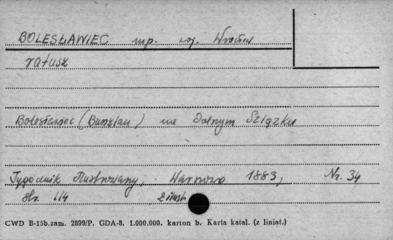 BOLESŁAWIEC mp. woj. Wrocław
ratusz
Bolesławiec (Bunzlau) na Dolnym Śląsku
Tygodnik Ilustrowany, Warszawa 1883, Nr. 34
Str. 114
CWD B-15b.zam. 2899/P. GDA-8. 1.000.000. karton b. Karta katal. (z liniat.)